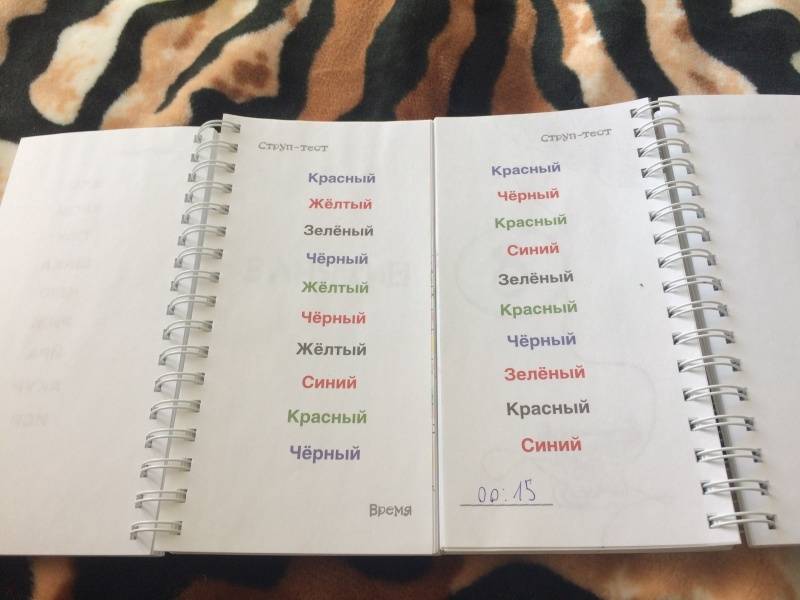 Струп-тест
Красный
Жёлтый
Зелёный
Чёрный
Жёлтый
Чёрный
Жёлтый
Синий
Красный
Чёрный
Время
Струп-тест
Красный
Чёрный
Красный
Синий
Зелёный
Красный
Чёрный
Зелёный
Красный
Синий
00:15